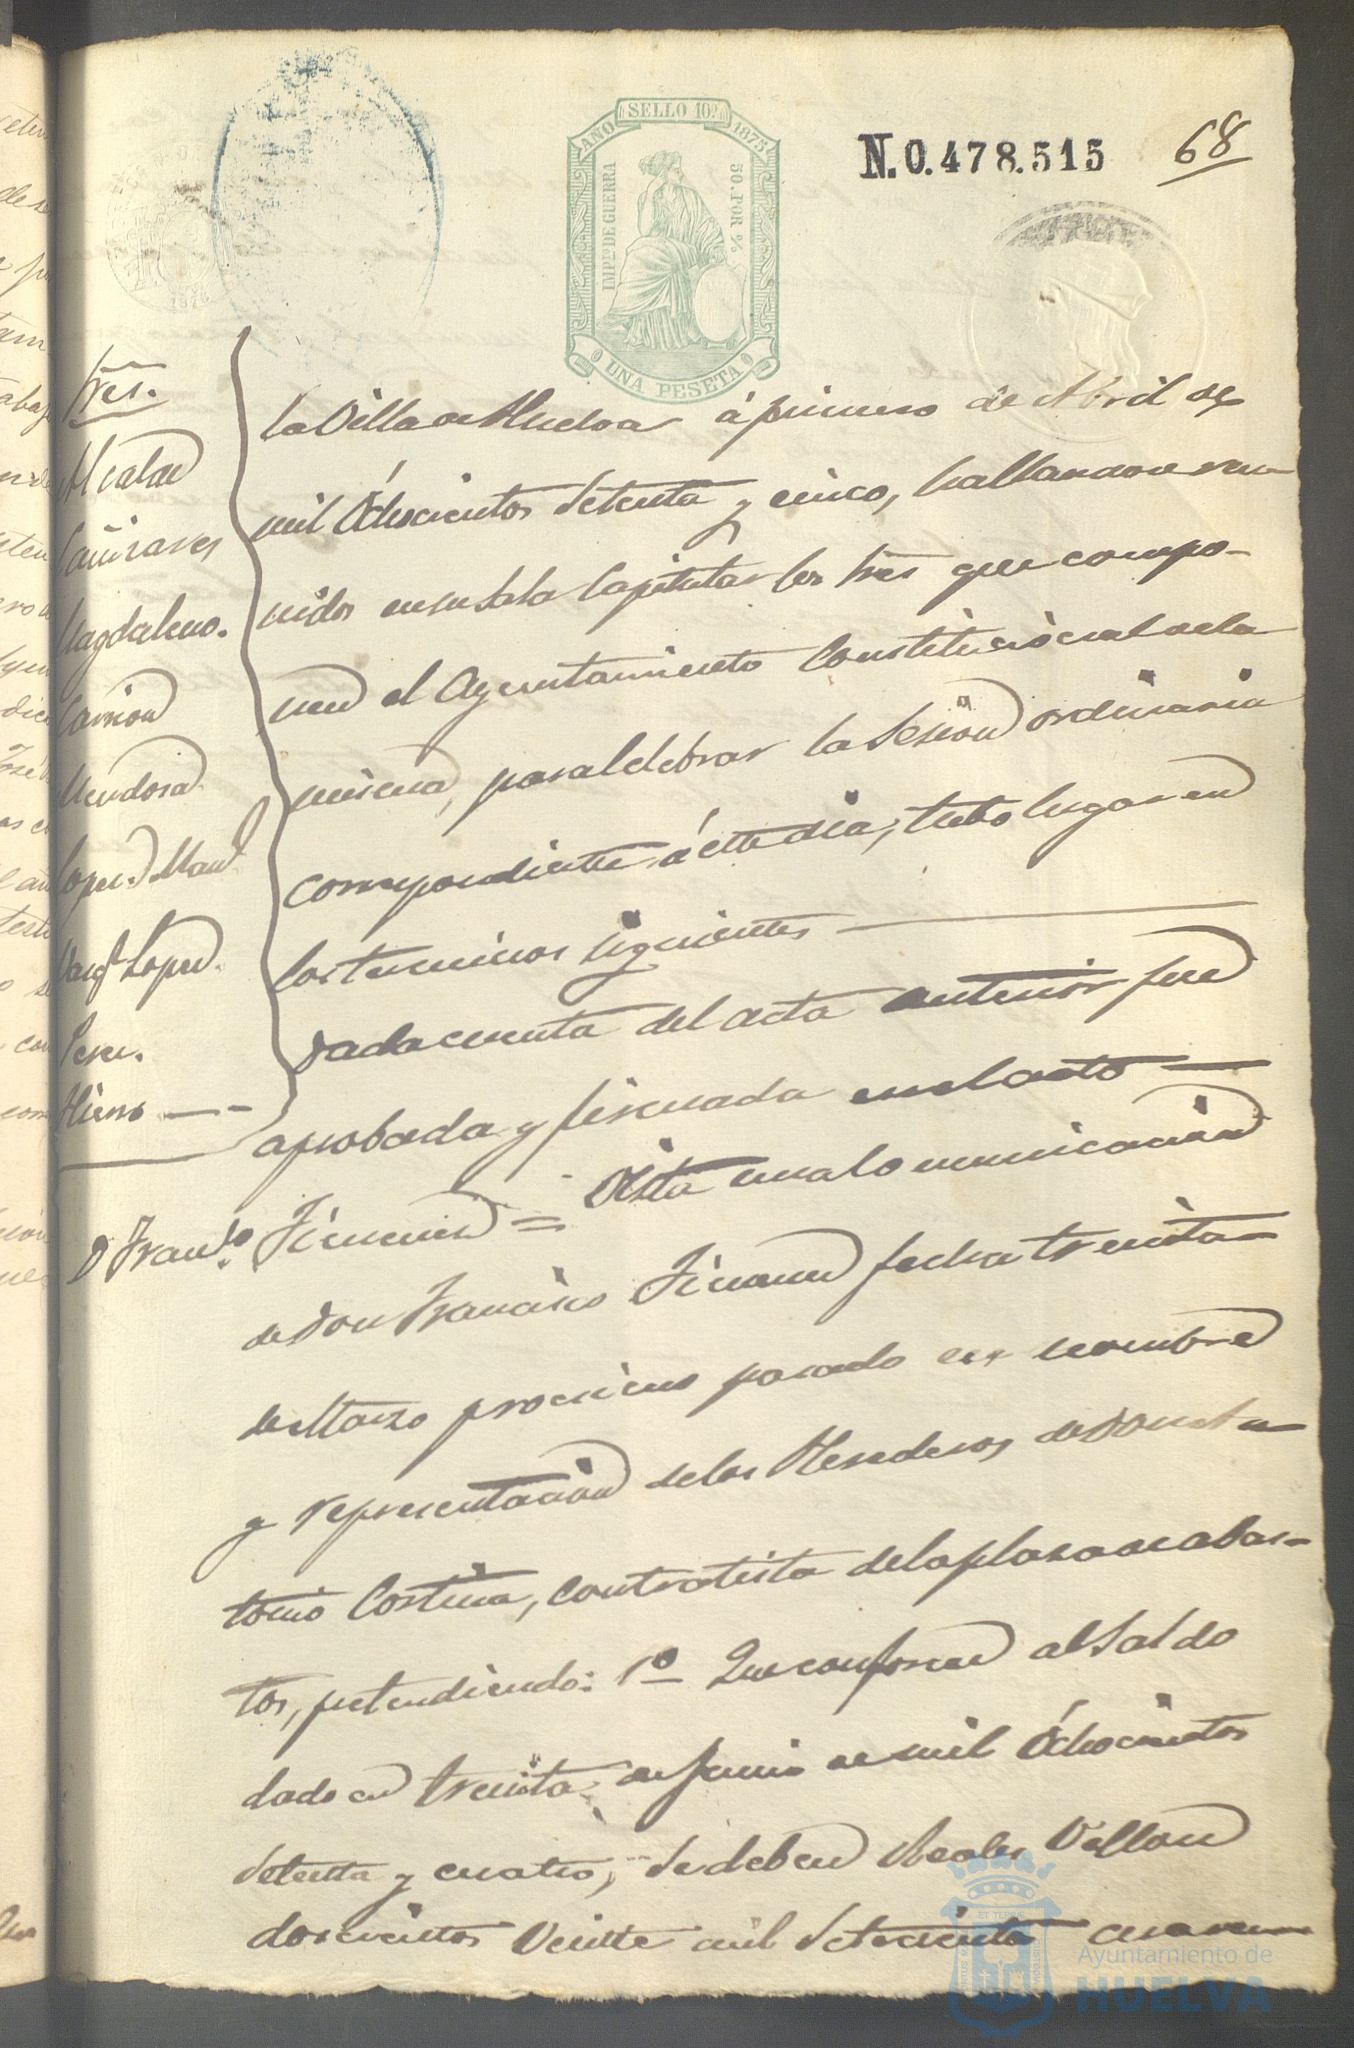 AÑO SELLO 10º 1875
IMPTO DE GUERRA
50 POR %
UNA PESETA
N.0.478.515
68
1875
Sres.
Alcalde
Cañizares
Magdaleno.
Carrion
Mendosa
Lopez D. Manl.
Vazqz Lopez.
Perez.
Hierro
la Villa de Huelva á primero de Abril de
mil Ochocientos Setenta y cinco, hallandose reu-
nidos en su Sala Capitular los Sres que compo-
nen el Ayuntamiento Constitucional de la
misma, para selebrar la Sesion ordinaria
correspondiente á este dia, tubo lugar en
los terminos siguientes
Dada cuenta del acta anterior fue
aprobada y firmada en el acto
D. Franco. Jimenez = Vista una Comunicacion
de Don Francisco Jimenez fecha treinta
de Marzo procsimo pasado en nombre
y representacion de los Herederos de Don An
tonio Cortina, contratista de la plaza de abas-
tos, pretendiendo: 1º Que conforme al Saldo
dado en treinta de Junio de mil Ochocientos
Setenta y cuatro, se deben Reales Vellon
doscientos Veinte mil Setecientos cuaren
Ayuntamiento de
HUELVA